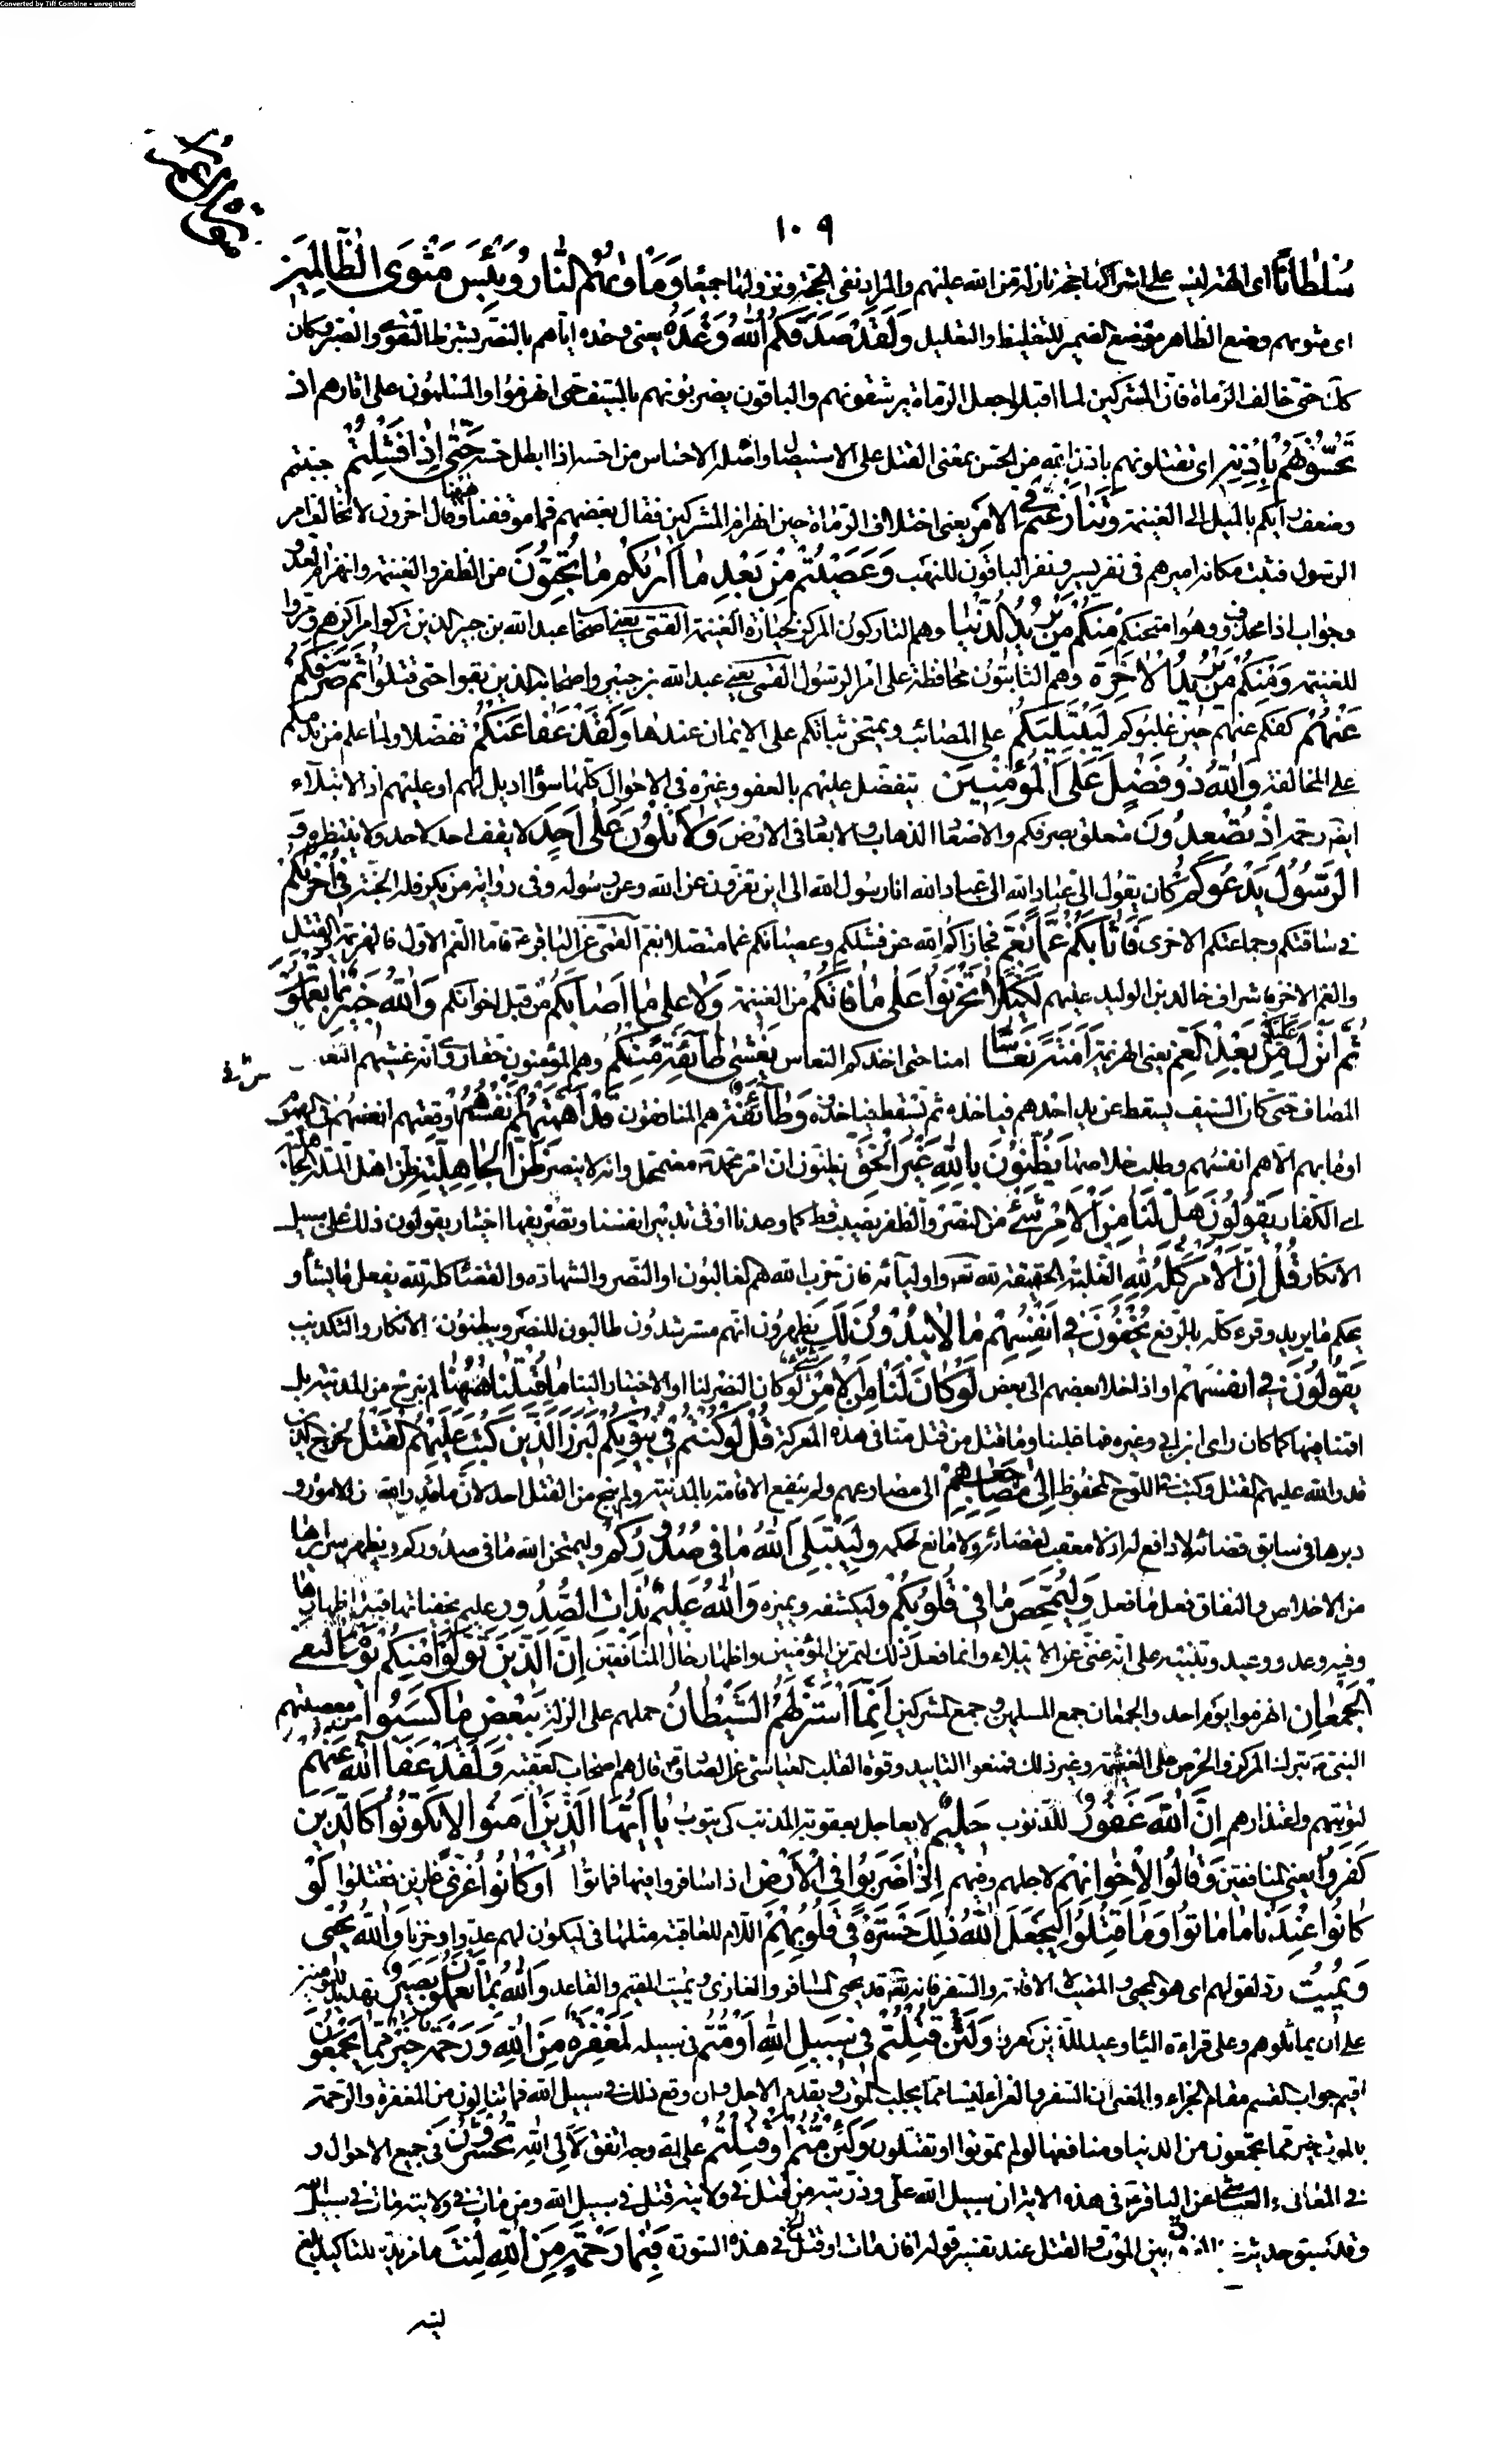 Converted by Tiff Combine - unregistered
سورة آل عمران
١٠٩
سُلْطَانًا اى الهة ليس على اشراكها حجة نازلة من الله عليهم والمراد نفى الحجة ونزولها جميعا وَمَأْوٰيهُمُ النَّارُ وَبِئْسَ مَثْوَى الظَّالِمِينَ
اى مثويهم وضع الظاهر موضع الضمير للتغليظ والتعليل وَلَقَدْ صَدَقَكُمُ اللهُ وَعْدَهُ يعنى وعده اياهم بالنصر بشرط التقوى والصبر وكان
كك حتى خالف الرماة فان المشركين لما اقبلوا جعل الرماة يرشقونهم والباقون يضربونهم بالسيف حتى انهزموا والمسلمون على اثارهم اذ
تَحُسُّونَهُمْ بِإِذْنِهِ اى تقتلونهم باذن الله من الحس بمعنى القتل على الاستيصال واصله الاحساس من احسه اذا ابطل حسه حَتّٰى إِذَا فَشِلْتُمْ جبنتم
وضعف رأيكم بالميل الى الغنيمة وَتَنَازَعْتُمْ فِي الْأَمْرِ يعنى اختلاف الرماة حين انهزام المشركين فقال بعضهم فما موقفنا ههنا وقال اخرون لا نخالف امر
الرسول فثبت مكانه اميرهم فى نفر يسير ونفر الباقون للنهب وَعَصَيْتُمْ مِنْ بَعْدِ مَا أَرٰيكُمْ مَا تُحِبُّونَ من الظفر والغنيمة وانهزام العدو
وجواب اذا محذوف وهو امتحنكم مِنْكُمْ مَنْ يُرِيدُ الدُّنْيَا وهم التاركون المركز لحيازة الغنيمة القمى يعنى اصحاب عبد الله بن جبير الذين تركوا مراكزهم ومروا
للغنيمة وَمِنْكُمْ مَنْ يُرِيدُ الْآخِرَةَ وهم الثابتون محافظة على امر الرسول القمى يعنى عبد الله بن جبير واصحابه الذين بقوا حتى قتلوا ثُمَّ صَرَفَكُمْ
عَنْهُمْ كفكم عنهم حين غلبوكم لِيَبْتَلِيَكُمْ على المصائب ويمتحن ثباتكم على الايمان عندها وَلَقَدْ عَفَا عَنْكُمْ تفضلا ولما علم من ندمكم
على المخالفة وَاللهُ ذُو فَضْلٍ عَلَى الْمُؤْمِنِينَ يتفضل عليهم بالعفو وغيره فى الاحوال كلها سواء اديل لهم او عليهم اذ الابتلاء
ايضا رحمة إِذْ تُصْعِدُونَ متعلق بصرفكم والاصعاد الذهاب والابعاد فى الارض وَلَا تَلْوُونَ عَلٰى أَحَدٍ لا يقف احد لاحد ولا ينتظره وَ
الرَّسُولُ يَدْعُوكُمْ كان يقول الى عباد الله الى عباد الله انا رسول الله الى اين تفرون عن الله وعن رسوله وفى رواية من يكر فله الجنة فِي أُخْرٰيكُمْ
فى ساقتكم وجماعتكم الاخرى فَأَثَابَكُمْ غَمًّا بِغَمٍّ فجازاكم الله عن فشلكم وعصيانكم غما متصلا بغم القمى عن الباقر ع فاما الغم الاول فالهزيمة والقتل
والغم الاخر فاشراف خالد بن الوليد عليهم لِكَيْلَا تَحْزَنُوا عَلٰى مَا فَاتَكُمْ من الغنيمة وَلَا عَلى مَا أَصَابَكُمْ من قتل اخوانكم وَاللهُ خَبِيرٌ بِمَا تَعْمَلُونَ
ثُمَّ أَنْزَلَ عَلَيْكُمْ مِنْ بَعْدِ الْغَمِّ يعنى الهزيمة أَمَنَةً نُعَاسًا امنا حتى اخذكم النعاس يَغْشٰى طَائِفَةً مِنْكُمْ وهم المؤمنون حقا روى انه غشيهم النعاس فى
المصاف حتى كان السيف يسقط عن يد احدهم فياخذه ثم يسقط فياخذه وَطَائِفَةٌ هم المنافقون قَدْ أَهَمَّتْهُمْ أَنْفُسُهُمْ اوقعتهم انفسهم فى الهموم
او ما بهم الا هم انفسهم وطلب خلاصها يَظُنُّونَ بِاللهِ غَيْرَ الْحَقِّ يظنون ان امر محمد ص مضمحل وانه لا ينصر ظَنَّ الْجَاهِلِيَّةِ ظن اهل الملة الجاهلية
اى الكفار يَقُولُونَ هَلْ لَنَا مِنَ الْأَمْرِ مِنْ شَيْءٍ من النصر والظفر نصيب قط كما وعدنا او فى تدبير انفسنا وتصريفها اختيار يقولون ذلك على سبيل
الانكار قُلْ إِنَّ الْأَمْرَ كُلَّهُ لِلهِ الغلبة الحقيقة لله تعالى واوليائه فان حزب الله هم الغالبون او النصر والشهادة والقضاء كله لله يفعل ما يشاء و
يحكم ما يريد وقرء كله بالرفع يُخْفُونَ فِي أَنْفُسِهِمْ مَا لَا يُبْدُونَ لَكَ يظهرون انهم مسترشدون طالبون للنصر ويبطنون الانكار والتكذيب
يَقُولُونَ فى انفسهم او اذا خلا بعضهم الى بعض لَوْ كَانَ لَنَا مِنَ الْأَمْرِ شَيْءٌ لو كان النصر لنا او الاختيار الينا مَا قُتِلْنَا هٰهُنَا لم نبرح من المدينة بل
اقمنا فيها كما كان راى ابن ابى وغيره فما غلبنا وما قتل من قتل منا فى هذه المعركة قُلْ لَوْ كُنْتُمْ فِي بُيُوتِكُمْ لَبَرَزَ الَّذِينَ كُتِبَ عَلَيْهِمُ الْقَتْلُ لخرج الذين
قدر الله عليهم القتل وكتب فى اللوح المحفوظ إِلٰى مَضَاجِعِهِمْ الى مصارعهم ولم ينفع الاقامة بالمدينة ولم ينج من القتل احد لان ما قدر الله من الامور و
دبرها فى سابق قضائه لا دافع لمراده لا معقب لقضائه ولا مانع لحكمه وَلِيَبْتَلِيَ اللهُ مَا فِي صُدُورِكُمْ وليمتحن الله ما فى صدوركم ويظهر سرائرها
من الاخلاص والنفاق فعل ما فعل وَلِيُمَحِّصَ مَا فِي قُلُوبِكُمْ وليكشفه ويميزه وَاللهُ عَلِيمٌ بِذَاتِ الصُّدُورِ عليم بخفياتها قبل اظهارها
وفيه وعد ووعيد وتنبيه على انه غنى عن الابتلاء وانما فعل ذلك لتمرين المؤمنين واظهار حال المنافقين إِنَّ الَّذِينَ تَوَلَّوْا مِنْكُمْ يَوْمَ الْتَقَى
الْجَمْعَانِ انهزموا يوم احد والجمعان جمع المسلمين وجمع المشركين إِنَّمَا اسْتَزَلَّهُمُ الشَّيْطَانُ حملهم على الزلة بِبَعْضِ مَا كَسَبُوا من معصيتهم
النبى ص بترك المركز والحرص على الغنيمة وغير ذلك فمنعوا التاييد وقوة القلب العياشى عن الصادق ع قال هم اصحاب العقبة وَلَقَدْ عَفَا اللهُ عَنْهُمْ
لتوبتهم واعتذارهم إِنَّ اللهَ غَفُورٌ للذنوب حَلِيمٌ لا يعاجل بعقوبة المذنب كى يتوب يَا أَيُّهَا الَّذِينَ آمَنُوا لَا تَكُونُوا كَالَّذِينَ
كَفَرُوا يعنى المنافقين وَقَالُوا لِإِخْوَانِهِمْ لاجلهم وفيهم إِذَا ضَرَبُوا فِي الْأَرْضِ اذا سافروا فيها فماتوا أَوْ كَانُوا غُزًّى غازين فقتلوا لَوْ
كَانُوا عِنْدَنَا مَا مَاتُوا وَمَا قُتِلُوا لِيَجْعَلَ اللهُ ذٰلِكَ حَسْرَةً فِي قُلُوبِهِمْ اللام للعاقبة مثلها فى ليكون لهم عدوا وحزنا وَاللهُ يُحْيِي
وَيُمِيتُ رد لقولهم اى هو المحيى والمميت لا الاقامة والسفر فانه تعالى قد يحيى المسافر والغازى ويميت المقيم والقاعد وَاللهُ بِمَا تَعْمَلُونَ بَصِيرٌ تهديد للمؤمنين
على ان يماثلوهم وعلى قراءة الياء وعيد للذين كفروا وَلَئِنْ قُتِلْتُمْ فِي سَبِيلِ اللهِ أَوْ مُتُّمْ فى سبيله لَمَغْفِرَةٌ مِنَ اللهِ وَرَحْمَةٌ خَيْرٌ مِمَّا يَجْمَعُونَ
اقيم جواب القسم مقام الجزاء والمعنى ان السفر والغزاء ليسا مما يجلب الموت ويقدم الاجل وان وقع ذلك فى سبيل الله فما تنالون من المغفرة والرحمة
بالموت خير مما تجمعون من الدنيا ومنافعها لو لم تموتوا او تقتلون وَلَئِنْ مُتُّمْ أَوْ قُتِلْتُمْ على اى وجه اتفق لَإِلَى اللهِ تُحْشَرُونَ فى جميع الاحوال و
فى المعانى والعياشى عن الباقر ع فى هذه الاية ان سبيل الله على وذريته من قتل فى ولايته قتل فى سبيل الله ومن مات فى ولايته مات فى سبيل الله
وقد سبق حديث بين الموت والقتل عند تفسير قوله افان مات او قتل فى هذه السورة فَبِمَا رَحْمَةٍ مِنَ اللهِ لِنْتَ ما مزيدة للتاكيد
لينه